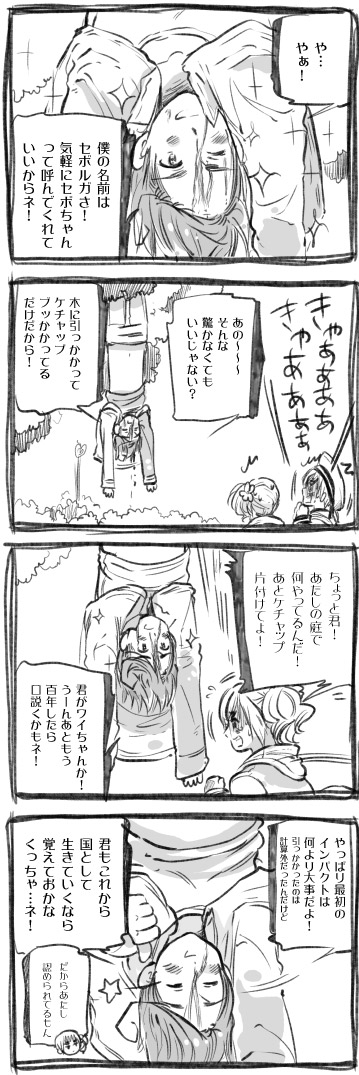 や…
やぁ！
僕の名前は
セボルガさ！
気軽にセボちゃん
って呼んでくれて
いいからネ！
きゃあああぁ
きゃあああぁ
あの～～
そんな
驚かなくても
いいじゃない？
木に引っかかって
ケチャップ
ブッかかってる
だけだから！
ちょっと君！
あたしの庭で
何やってるんだ！
あとケチャップ
片付けてよ！
君がワイちゃんか！
うーんあともう
百年したら
口説くかもネ！
やっぱり最初の
インパクトは
何より大事だよ！
引っかかったのは
計算外だったんだけど
君もこれから
国として
生きていくなら
覚えておかな
くっちゃ…ネ！
だからあたし
認められてるもん